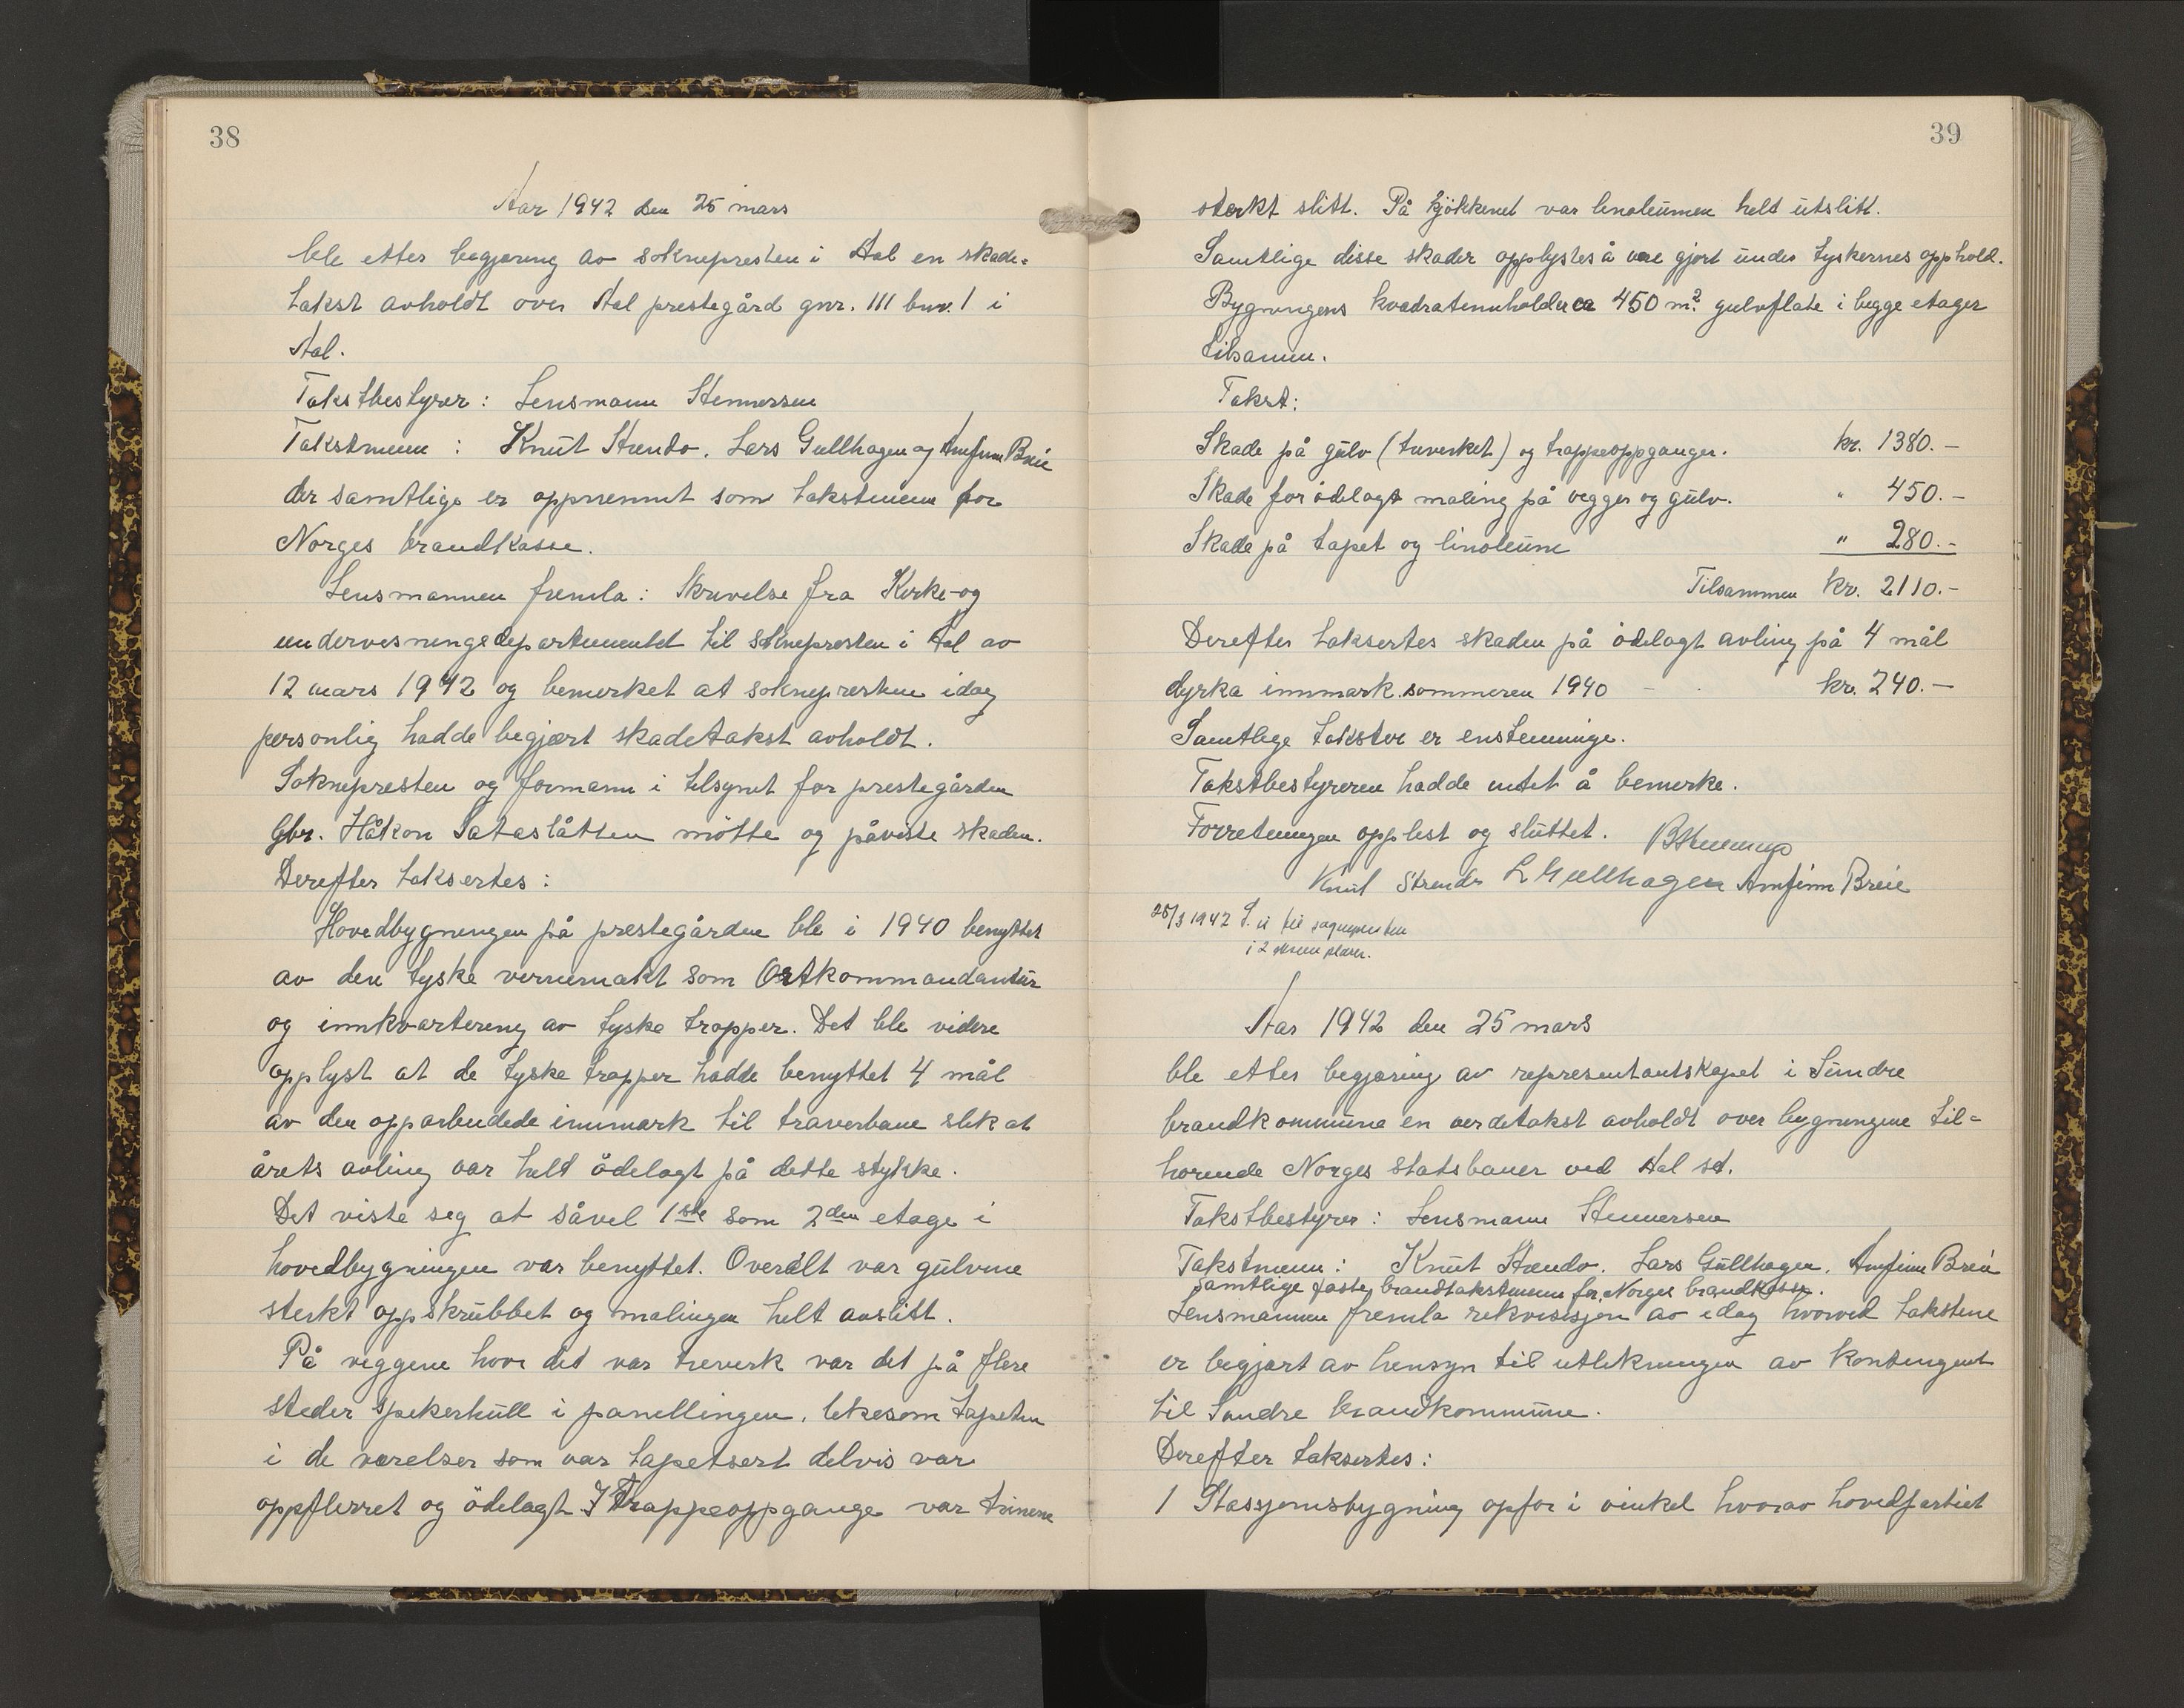 38
Aar 1942 den 25 mars
ble etter begjæring av soknepresten i Aal en skade=
takst avholdt over Aal prestegård gnr. 111 bnr. 1 i
Aal.
Takstbestyrer: Lensmann Stennersen
Takstmenn : Knut Strendo. Lars Gullhagen og Arnfinn Breie
der samtlige er oppnevnt som takstmenn for
Norges brandkasse.
Lensmannen fremla: Skrivelse fra Kirke- og
undervisningsdepartementet til soknepresten i Aal av
12 mars 1942 og bemerket at soknepresten idag
personlig hadde begjært skadetakst avholdt.
Soknepresten og formann i tilsynet for prestegården
Gbr. Håkon Sataslåtten mötte og påviste skaden.
Derefter taksertes:
Hovedbygningen på prestegården ble i 1940 benyttet
av den tyske vernemakt som Ortkommandantur
og innkvartering av tyske tropper. Det ble videre
opplyst at de tyske tropper hadde benyttet 4 mål
av den opparbeidede innmark til traverbane slik at
årets avling var helt ödelagt på dette stykke.
Det viste seg at såvel 1ste som 2den etage i
hovedbygningen var benyttet. Overalt var gulvene
sterkt oppskrubbet og malingen helt avslitt.
På veggene hvor det var treverk var det på flere
steder spikerhull i panellingen, likesom tapeten
i de værelser som var tapetsert delvis var
oppflerret og ödelagt. I Trappeoppgange var trinene
39
sterkt slitt. På kjökkenet var linoleumen helt utslitt.
Samtlige disse skader opplystes å være gjort under tyskernes opphold.
Bygningens kvadratinnhold er ca 450 m² gulvflate i begge etager
tilsamm.
Takst:
Skade på gulv (treverket) og trappeoppganger. kr. 1380.-
Skade for ödelagt maling på vegger og gulv. " 450.-
Skade på tapet og linoleum " 280.-
Tilsammen kr. 2110.-
Derefter taksertes skaden på ödelagt avling på 4 mål
dyrka innmark sommeren 1940 - kr. 240.-
Samtlige takster er enstemmige.
Takstbestyreren hadde intet å bemerke.
Forretningen opplest og sluttet.
Knut Strendo L Gullhagen Arnfinn Breie
25/3 1942 til sognepresten
i 2 eksemplarer.
Aar 1942 den 25 mars
ble etter begjæring av representantskapet i Sundre
brandkommune en verditakst avholdt over bygningene til=
hörende Norges Statsbaner ved Aal st.
Takstbestyrer: Lensmann Stennersen
Takstmenn: Knut Strendo. Lars Gullhagen. Arnfinn Breie
samtlige faste brandtakstmenn for Norges brandkasse.
Lensmannen fremla rekvisisjon av idag hvorved takstene
er begjært av hensyn til utlikningen av kontingent
til Sundre brandkommune.
Derefter taksertes:
1 Stassjonsbygning opfor i vinkel hvorav hovedpartiet